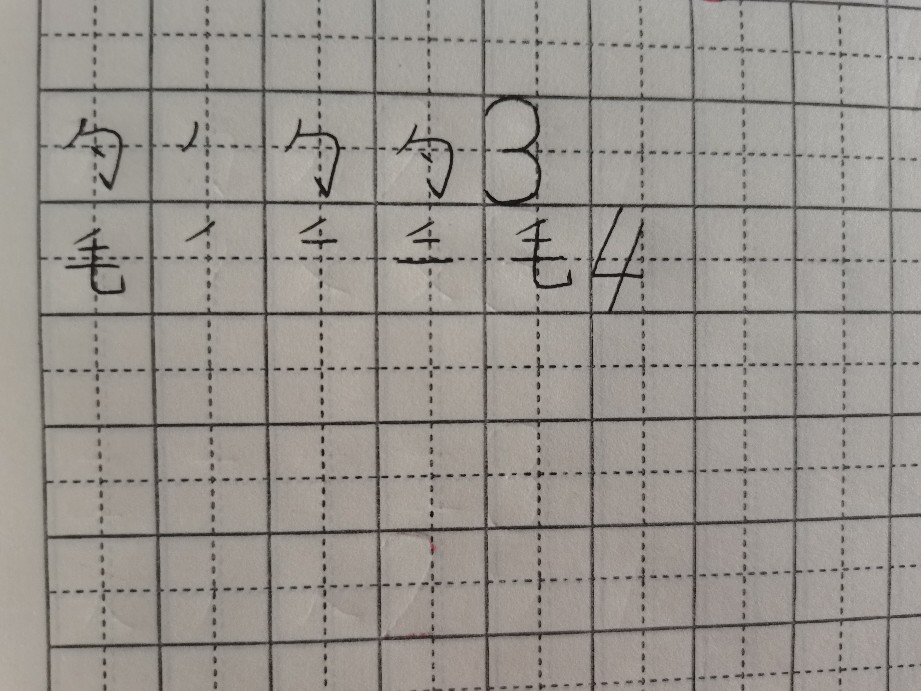 勺 丿 勹 勺 3
毛 丿 毛 4